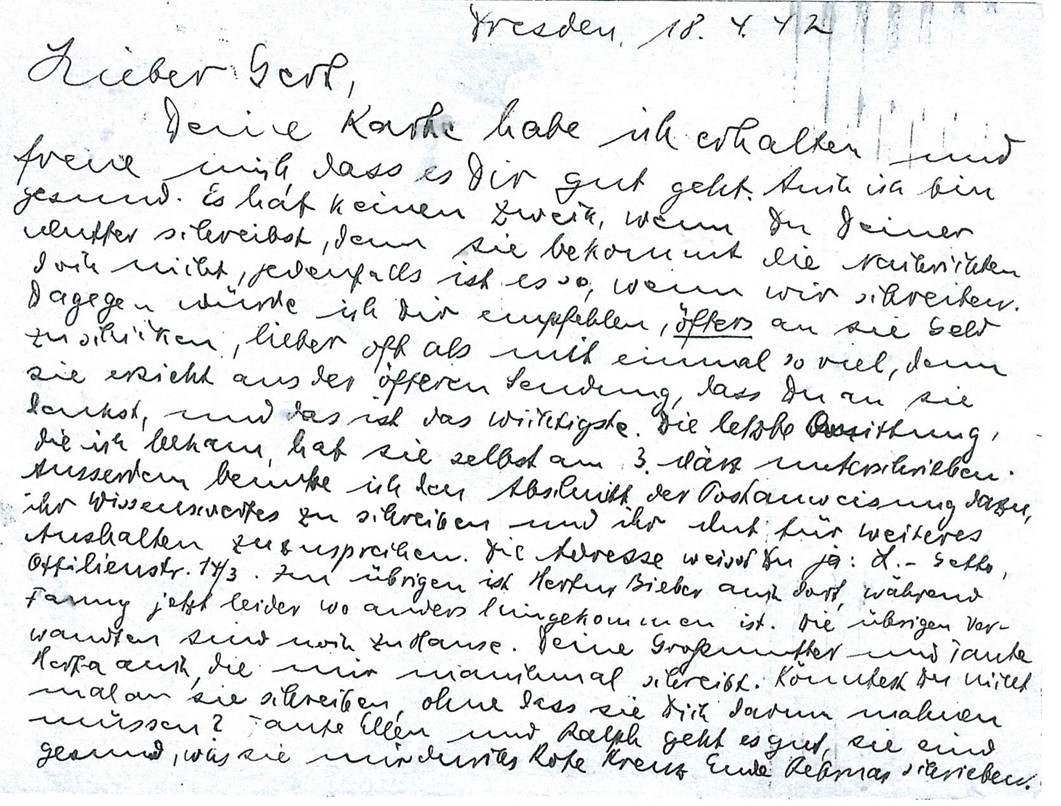 Dresden, 18. 4. 42
Lieber Gert,
Deine Karte habe ich erhalten und
freue mich, dass es Dir gut geht. Auch ich bin
gesund. Es hat keinen Zweck, wenn Du Deiner
Mutter schreibst, denn sie bekommt die Nachrichten
doch nicht, jedenfalls ist es so, wenn wir schreiben.
Dagegen würde ich Dir empfehlen, öfters an sie Geld
zu schicken, lieber oft als mit einmal so viel, denn
sie ersieht aus der öfteren Sendung, dass Du an sie
denkst, und das ist das wichtigste. Die letzte Quittung,
die ich bekam, hat sie selbst am 3. März unterschrieben.
Ausserdem benutze ich den Abschnitt der Postanweisung dazu,
ihr Wissenswertes zu schreiben und ihr Mut für weiteres
Aushalten zuzusprechen. Die Adresse weisst Du ja: L.-Getto,
Ottilienstr. 14/3. Im übrigen ist Bieber auch dort, während
Fanny jetzt leider wo anders hingekommen ist. Die übrigen Ver-
wandten sind noch zu Hause. Deine Großmutter und Tante
Herta auch, die mir manchmal schreibt. Könntest Du nicht
mal an sie schreiben, ohne dass sie Dich darum mahnen
müssen? Tante Ellen und Ralph geht es gut, sie sind
gesund, was sie mir durchs Rote Kreuz Ende Februar schrieben.